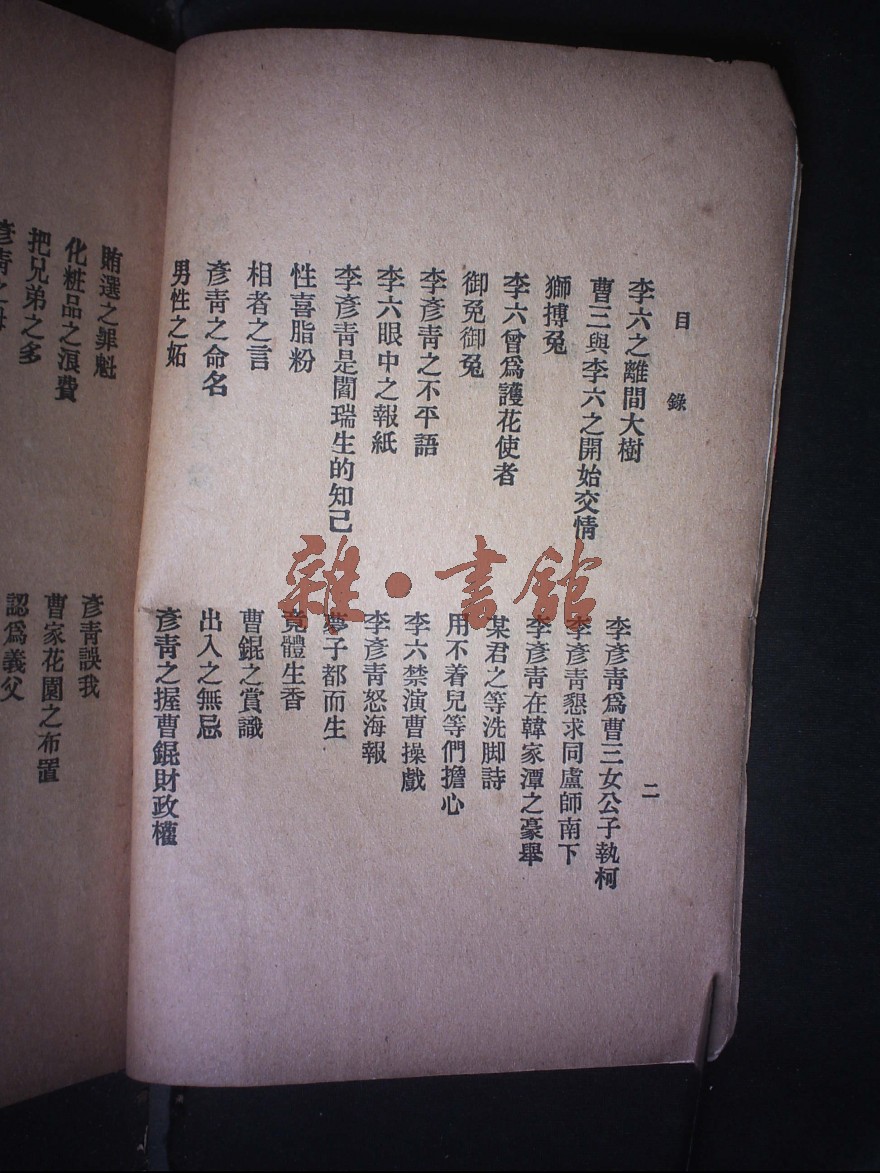 目錄
二
李六之離間大樹
李彥青爲曹三女公子執柯
曹三與李六之開始交情
李彥青懇求同盧師南下
獅搏兔
李彥青在韓家潭之豪舉
李六曾爲護花使者
某君之等洗脚詩
御免御兔
用不着兒等們擔心
李彥青之不平語
李六禁演曹操戲
李六眼中之報紙
李彥青怒海報
李彥青是閻瑞生的知己
夢子都而生
性喜脂粉
竟體生香
相者之言
曹錕之賞識
彥青之命名
出入之無忌
男性之妬
彥青之握曹錕財政權
賄選之罪魁
彥青誤我
化粧品之浪費
曹家花園之布置
把兄弟之多
認爲義父
彥青之母
雜·書館